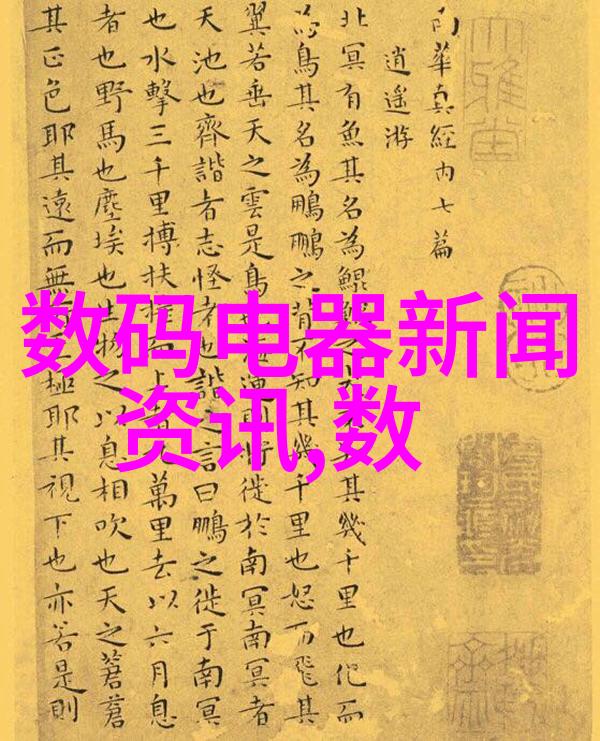 南華真經内七篇
逍遥游
北冥有魚其名為鯤鯤之大不其幾千里也化而
為鳥其名為鵬鵬之背不知其幾千里也怒而飛其
翼若垂天之雲是鳥也海運則将徙於南冥南冥者
天池也齊諧者志怪者也諧之言曰鵬之徙于南冥
也水擊三千里搏扶摇而上者九萬里去以六月息
者也野馬也塵埃也生物之以息相吹也天之蒼蒼
其正色耶其遠而無極耶其視下也亦若是則
大雅堂
数码电器新闻
资讯,数